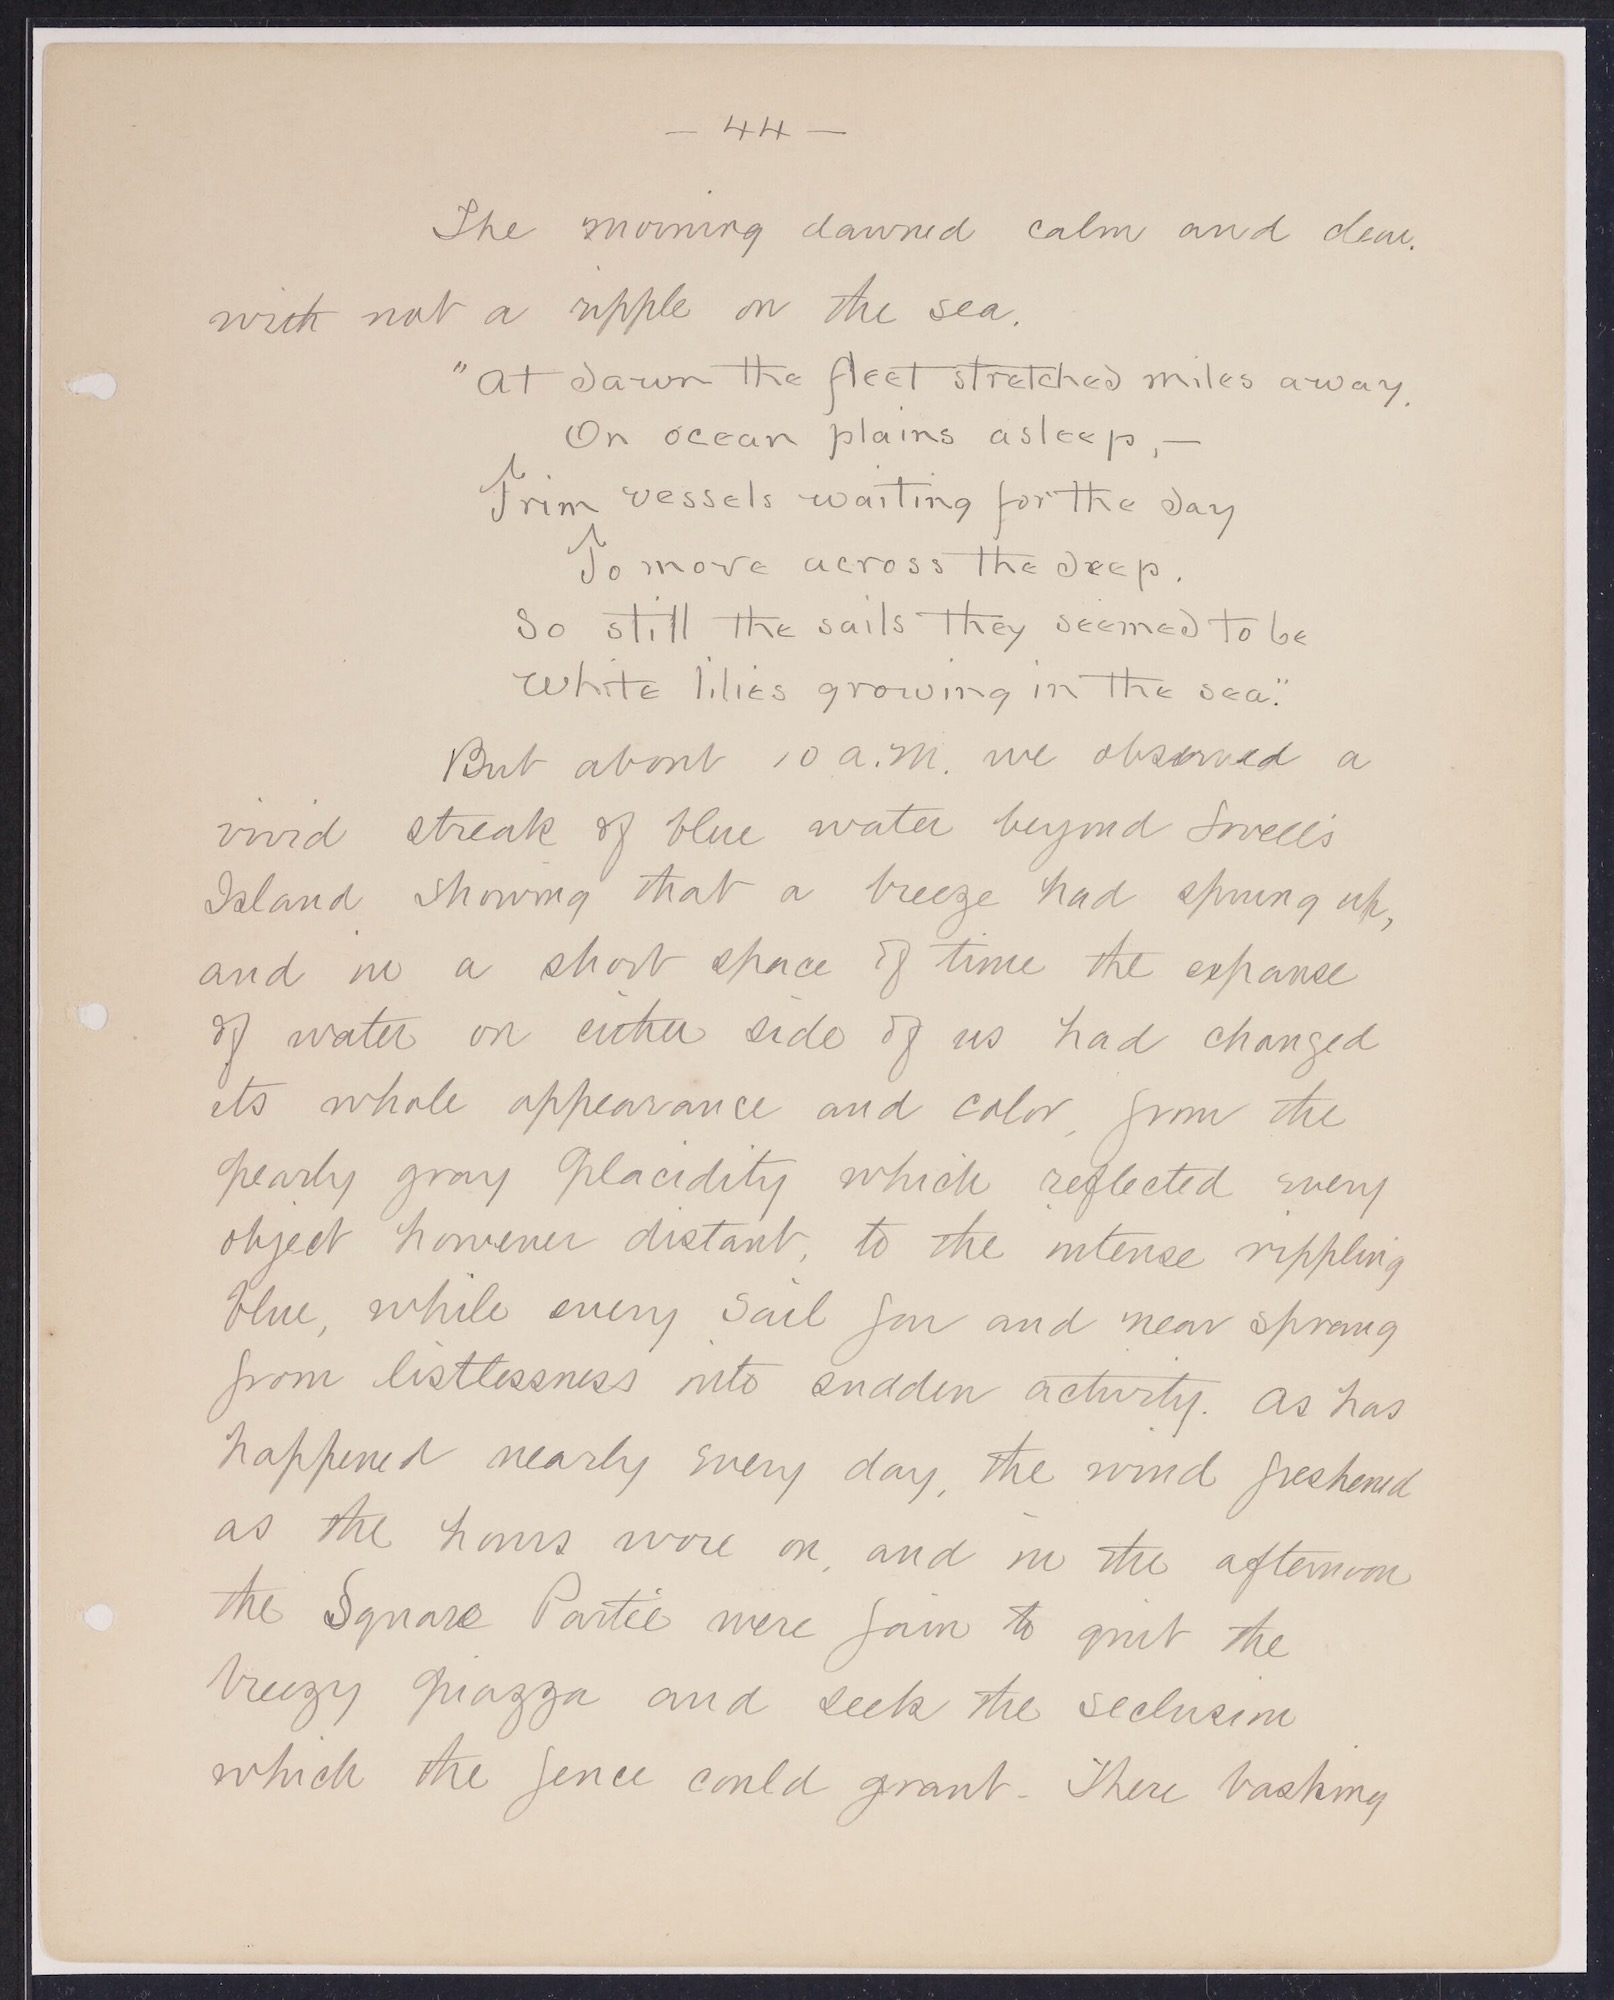 — 44 —
The morning dawned calm and clear.
with not a ripple on the sea.
"At dawn the fleet stretched miles away.
On ocean plains asleep,—
Trim vessels waiting for the day
To move across the deep.
So still the sails they seemed to be
White lilies growing in the sea."
But about 10 a.m. we observed a
vivid streak of blue water beyond Lovell's
Island showing that a breeze had sprung up,
and in a short space of time the expanse
of water on either side of us had changed
its whole appearance and color, from the
pearly gray placidity which reflected every
object however distant, to the intense rippling
blue, while every sail far and near sprang
from listlessness into sudden activity. As has
happened nearly every day, the wind freshened
as the hours wore on, and in the afternoon
the Square Partie were fain to quit the
breezy piazza and seek the seclusion
which the fence could grant. There basking